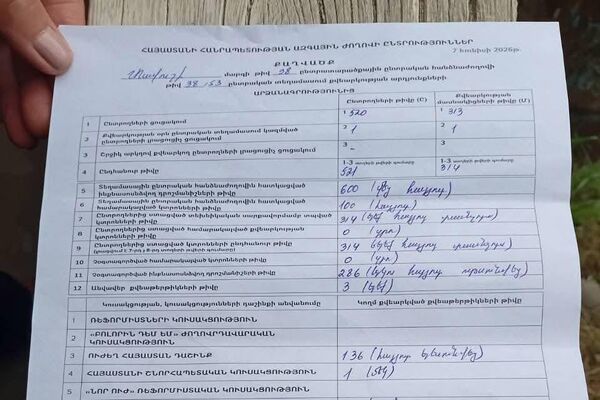 ՀԱՅԱՍՏԱՆԻ ՀԱՆՐԱՊԵՏՈՒԹՅԱՆ ԱԶԳԱՅԻՆ ԺՈՂՈՎԻ ԸՆՏՐՈՒԹՅՈՒՆՆԵՐ
7 հունիսի 2026թ.
ՔԱՂՎԱԾՔ
մարզի թիվ 38 ընտրատարածքային ընտրական հանձնաժողովի
թիվ 38/53 ընտրական տեղամասում քվեարկության արդյունքների
ԱՐՁԱՆԱԳՐՈՒԹՅՈՒՆԻՑ
Ընտրողների թիվը (Ը) Քվեարկության մասնակիցների թիվը (Մ)
1 Ընտրողների ցուցակում 1 520 1 313
2 Քվեարկության օրն ընտրական տեղամասում կազմված ընտրողների լրացուցիչ ցուցակում 2 1 2 1
3 Շրջիկ արկղով քվեարկող ընտրողների լրացուցիչ ցուցակում 3 - 3
4 Ընդհանուր թիվը 1-3 տողերի թվերի գումարը 521 1-3 տողերի թվերի գումարը 314
5 Տեղամասային ընտրական հանձնաժողովին հատկացված ինքնասոսնձվող դրոշմանիշների թիվը 600 (վեց հարյուր)
6 Տեղամասային ընտրական հանձնաժողովին հատկացված համարակալված կտրոնների թիվը 100 (հարյուր)
7 Ընտրողներից ստացված տեխնիկական սարքավորմամբ տպված կտրոնների թիվը 314 (երեք հարյուր տասնչորս)
8 Ընտրողներից ստացված համարակալված քվեարկության կտրոնների թիվը 0 (զրո)
9 Ընտրողներից ստացված կտրոնների ընդհանուր թիվը 314 (երեք հարյուր տասնչորս)
10 Չօգտագործված համարակալված կտրոնների թիվը 0 (զրո)
11 Չօգտագործված ինքնասոսնձվող դրոշմանիշների թիվը 286 (երկու հարյուր ութսունվեց)
12 Անվավեր քվեաթերթիկների թիվը 3 (երեք)
Կուսակցության, կուսակցությունների դաշինքի անվանումը Կողմ քվեարկված քվեաթերթիկների թիվը
1 ՌԵՖՈՐՄԻՍՏՆԵՐԻ ԿՈՒՍԱԿՑՈՒԹՅՈՒՆ
2 «ԲՈԼՈՐԻՆ ԴԵՄ ԵՄ» ԺՈՂՈՎՐԴԱՎԱՐԱԿԱՆ ԿՈՒՍԱԿՑՈՒԹՅՈՒՆ
3 ՈՒԺԵՂ ՀԱՅԱՍՏԱՆ ԴԱՇԻՆՔ 136 (հարյուր երեսունվեց)
4 ՀԱՅԱՍՏԱՆԻ ՇՆՈՐՀԱՊԵՏԱԿԱՆ ԿՈՒՍԱԿՑՈՒԹՅՈՒՆ 1 (մեկ)
5 «ՆՈՐ ՈՒԺ» ՌԵՖՈՐՄԻՍՏԱԿԱՆ ԿՈՒՍԱԿՑՈՒԹՅՈՒՆ